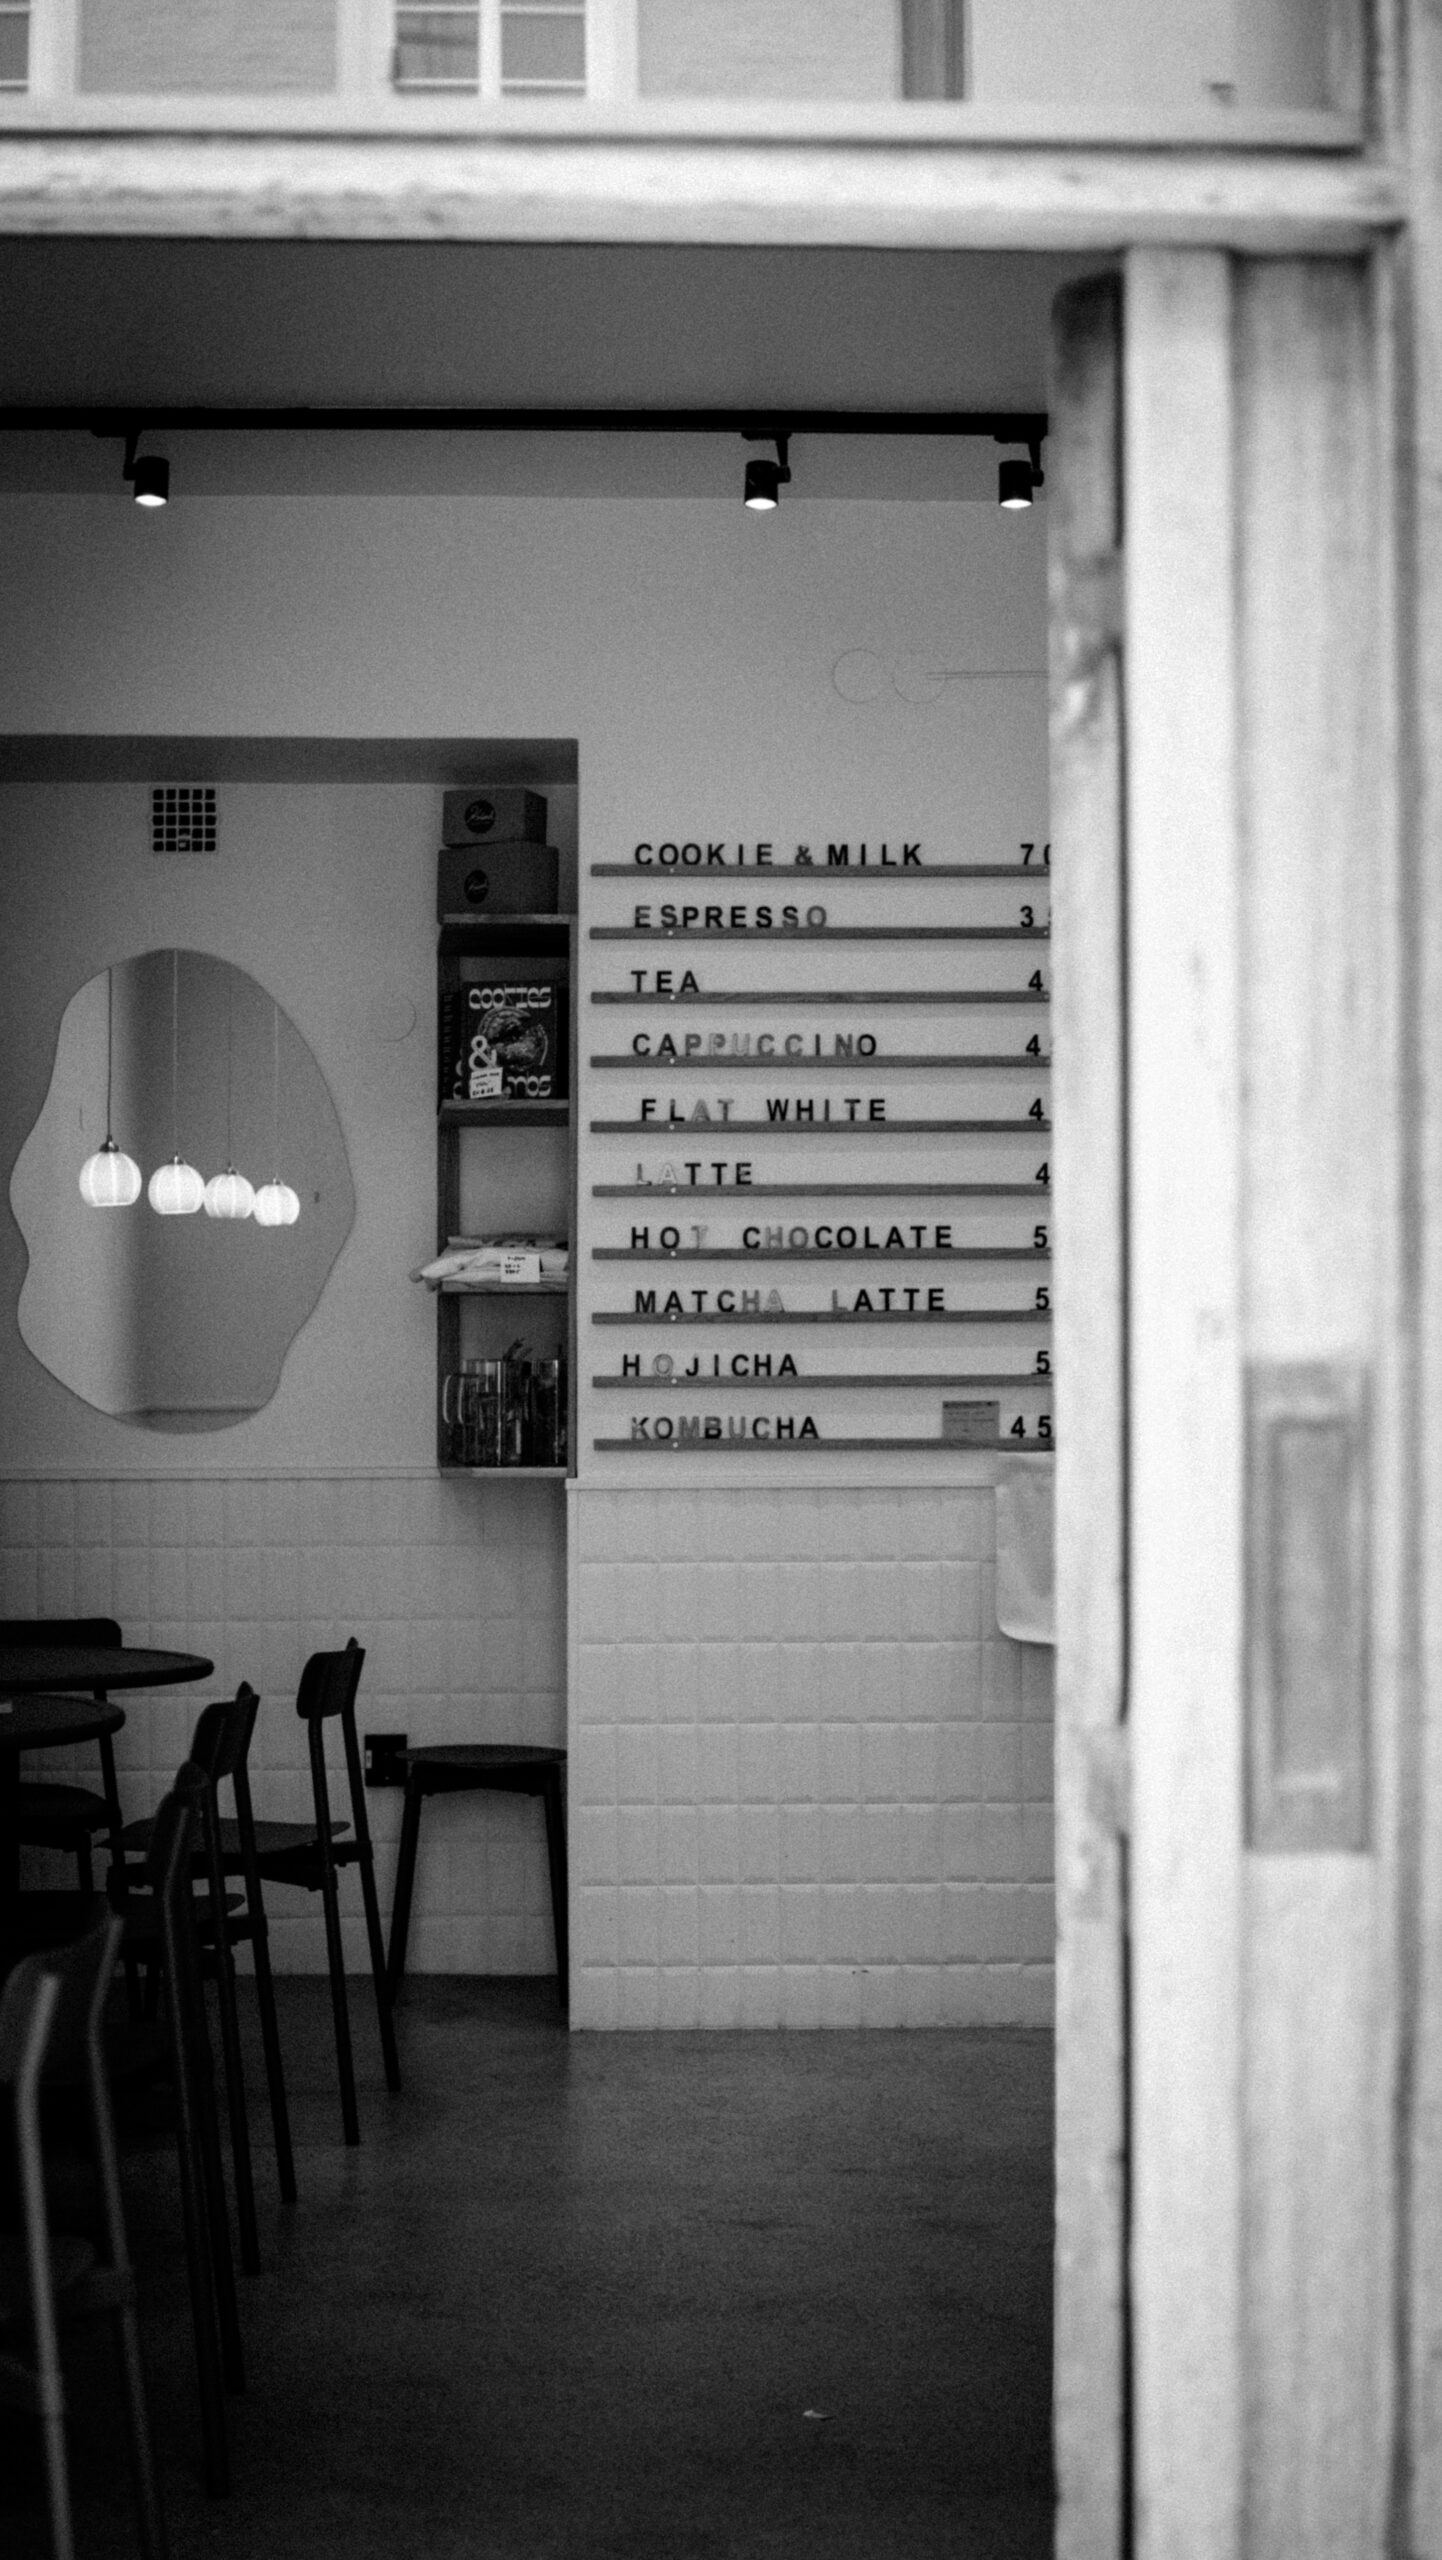 COOKIE & MILK 70
ESPRESSO 3
TEA 4
CAPPUCCINO 4
FLAT WHITE 4
LATTE 4
HOT CHOCOLATE 5
MATCHA LATTE 5
HOJICHA 5
KOMBUCHA 45
COOKIES
&